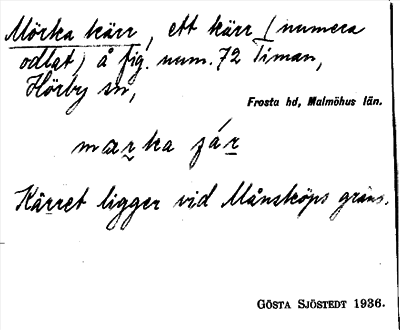 Mörka kärr, ett kärr (numera
odlat) å fig. num. 72 Timan,
Hörby sn,
Frosta hd, Malmöhus län.
Kärret ligger vid Månsköps gräns.
GÖSTA SJÖSTEDT 1936.